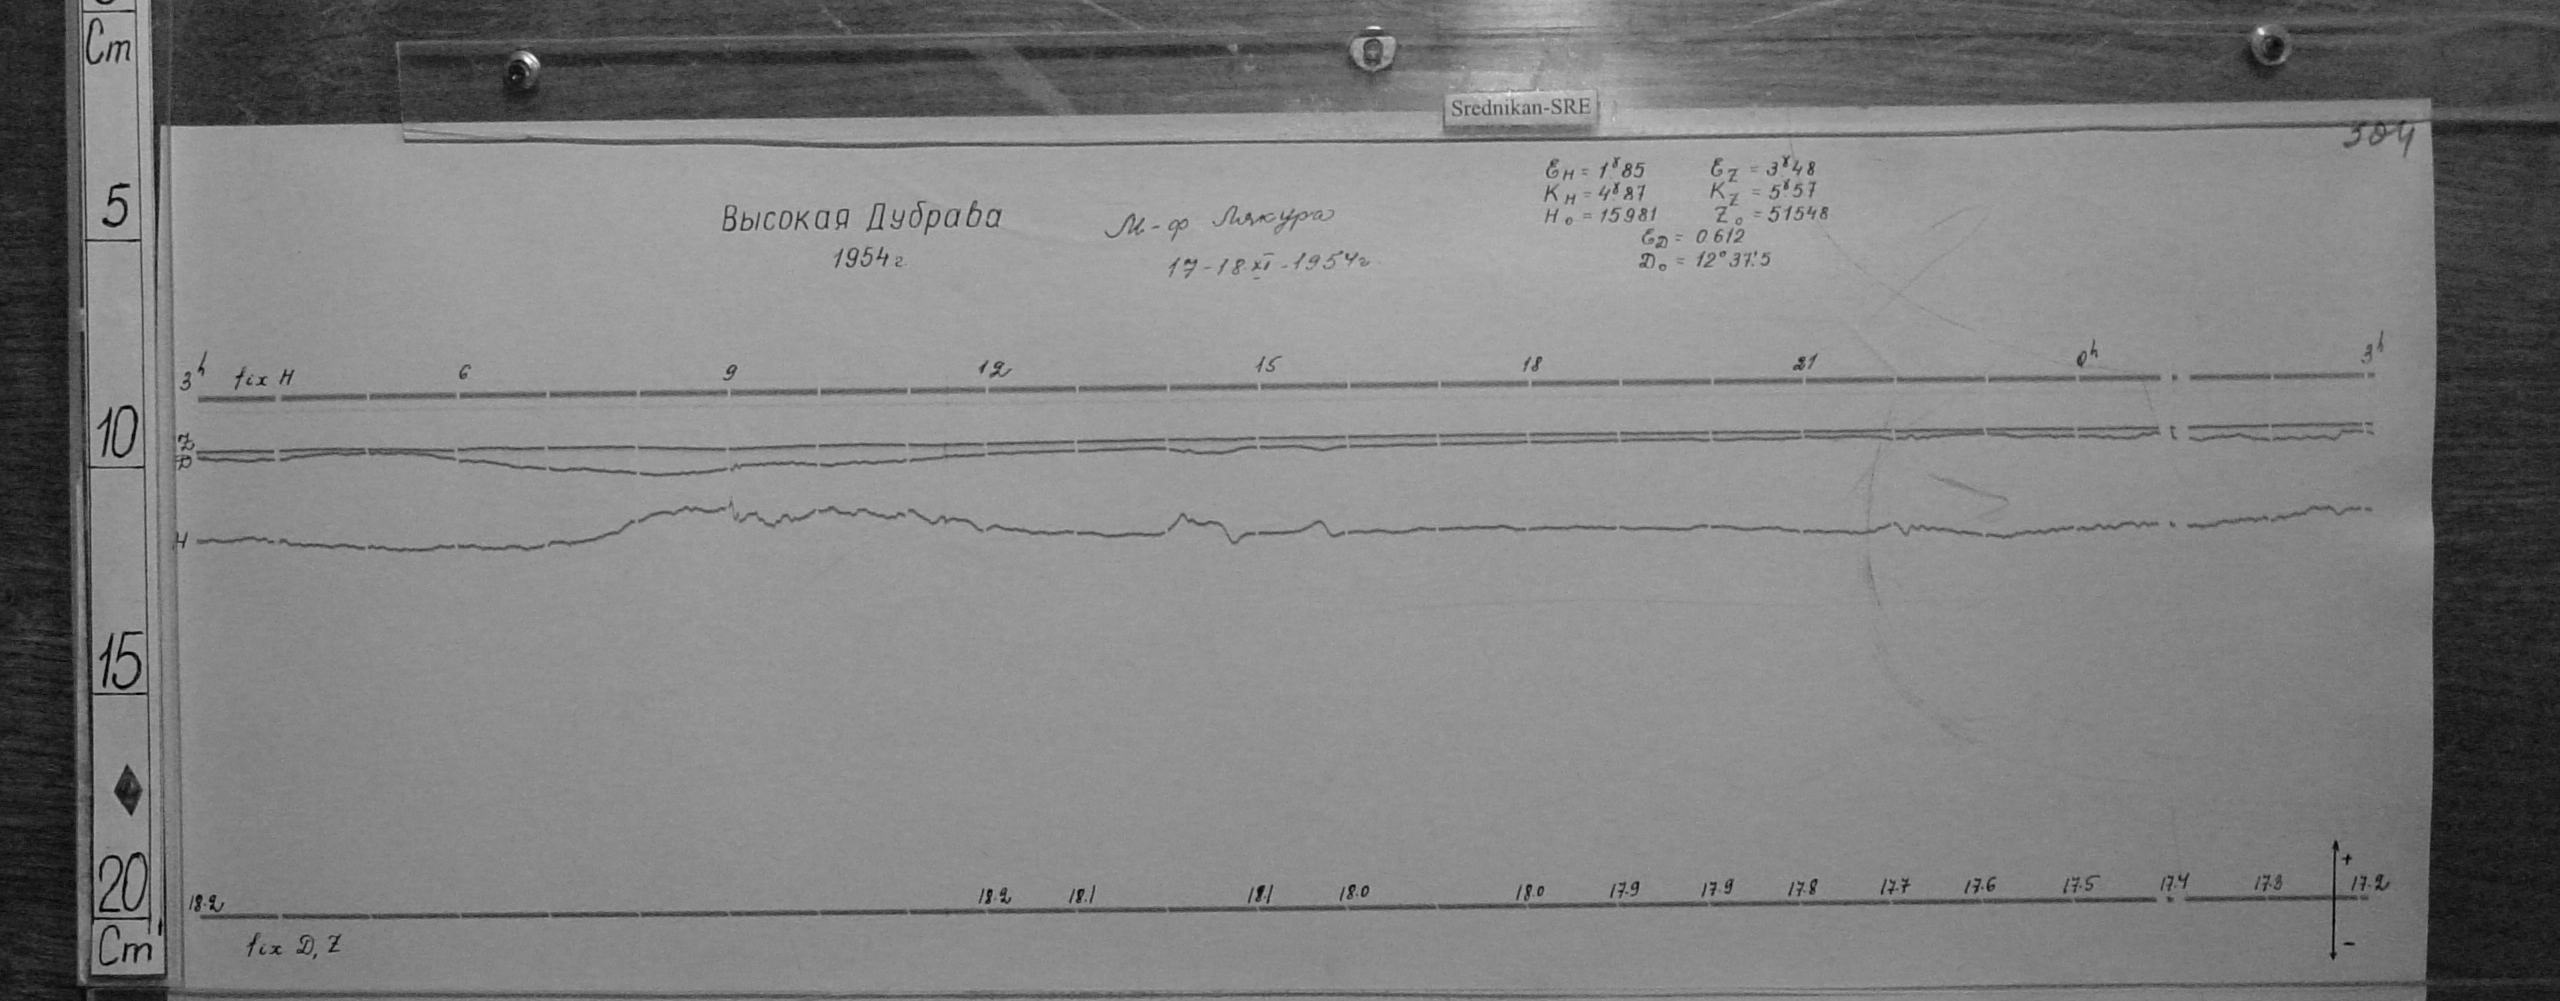 Cm
5
10
15
20
Cm
Srednikan-SRE
Высокая Дубрава
1954 г.
М-ф Ляжура
17-18.XI-1954г.
Ɛ_H = 1^γ85 Ɛ_Z = 3^γ48
K_H = 4^γ87 K_Z = 5^γ57
H_o = 15981 Z_o = 51548
Ɛ_D = 0.612
D_o = 12°37!5
3^h fix H 6 9 12 15 18 21 0^h 3^h
Z
D
H
18.2 18.2 18.1 18.1 18.0 18.0 17.9 17.9 17.8 17.7 17.6 17.5 17.4 17.3 17.2
+
-
fix D, Z